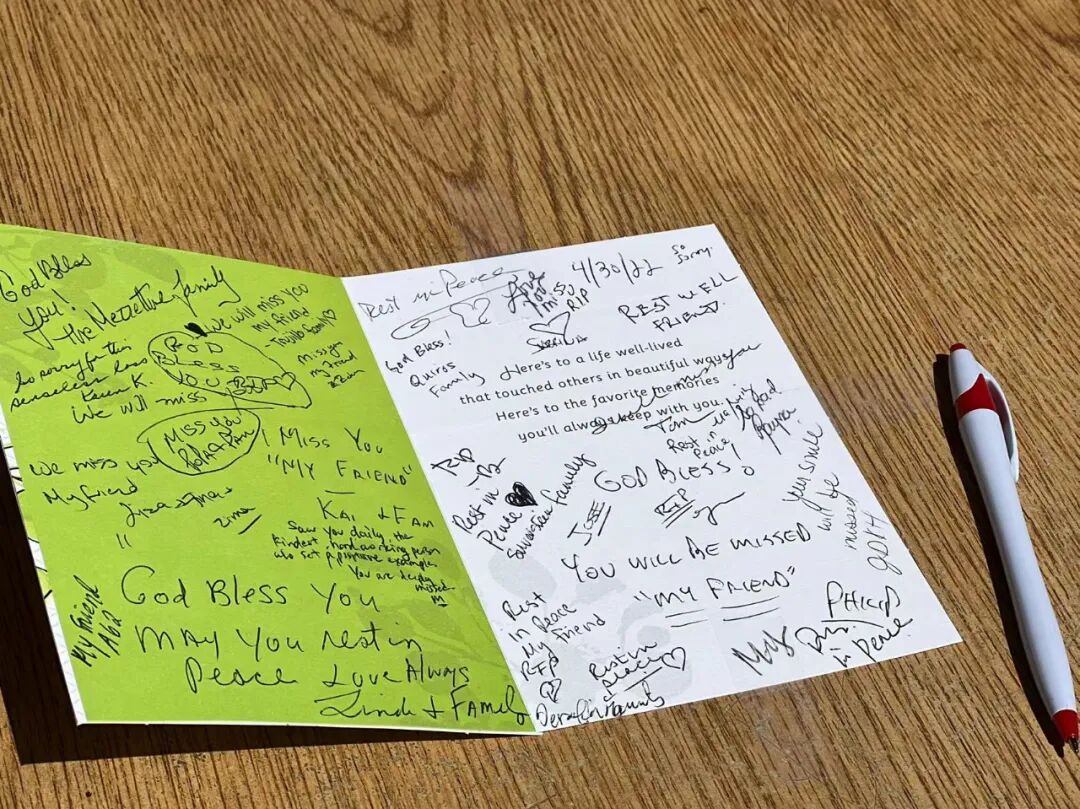 God Bless
You!
The Mezzetine family
So sorry for this
senseless loss
Karen K.
We will miss
GOD
BLESS
YOU
We will miss you
my friend
Trujillo family
Miss you
my friend
Miss you
We miss you
My friend
I MISS YOU
"MY FRIEND"
KAI + FAM
Saw you daily, the
kindest, hard working person
who set a positive example
You are deeply
missed
My Friend
GOD BLESS YOU
MAY YOU rest in
Peace Love Always
Linda + FAMILY
Rest in Peace
Love
you
miss U
RIP
4/30/22
So
sorry
REST WELL
FRIEND
God Bless!
Quiros
Family
Here's to a life well-lived
that touched others in beautiful ways
Here's to the favorite memories
you'll always keep with you.
Rest
in
Peace
So sad
RIP
Rest in
Peace
Family
GOD BLESS!
JESSE
RIP
Your smile
will be
missed
YOU WILL BE MISSED
"MY FRIEND"
Rest
In Peace
My
Friend
RIP
Rest in
peace
PHILIP
in peace